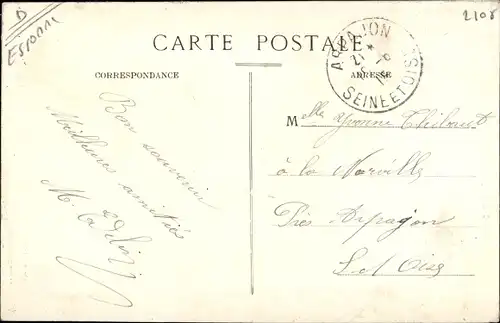 D
Essonne
2108
CARTE POSTALE
ARPAJON
21
SEINE ET OISE
CORRESPONDANCE
ADRESSE
Bon souvenir
Meilleures amitiés
M.
Melle Yvonne Thibaut
à la Norville
Près Arpajon
S. et Oise